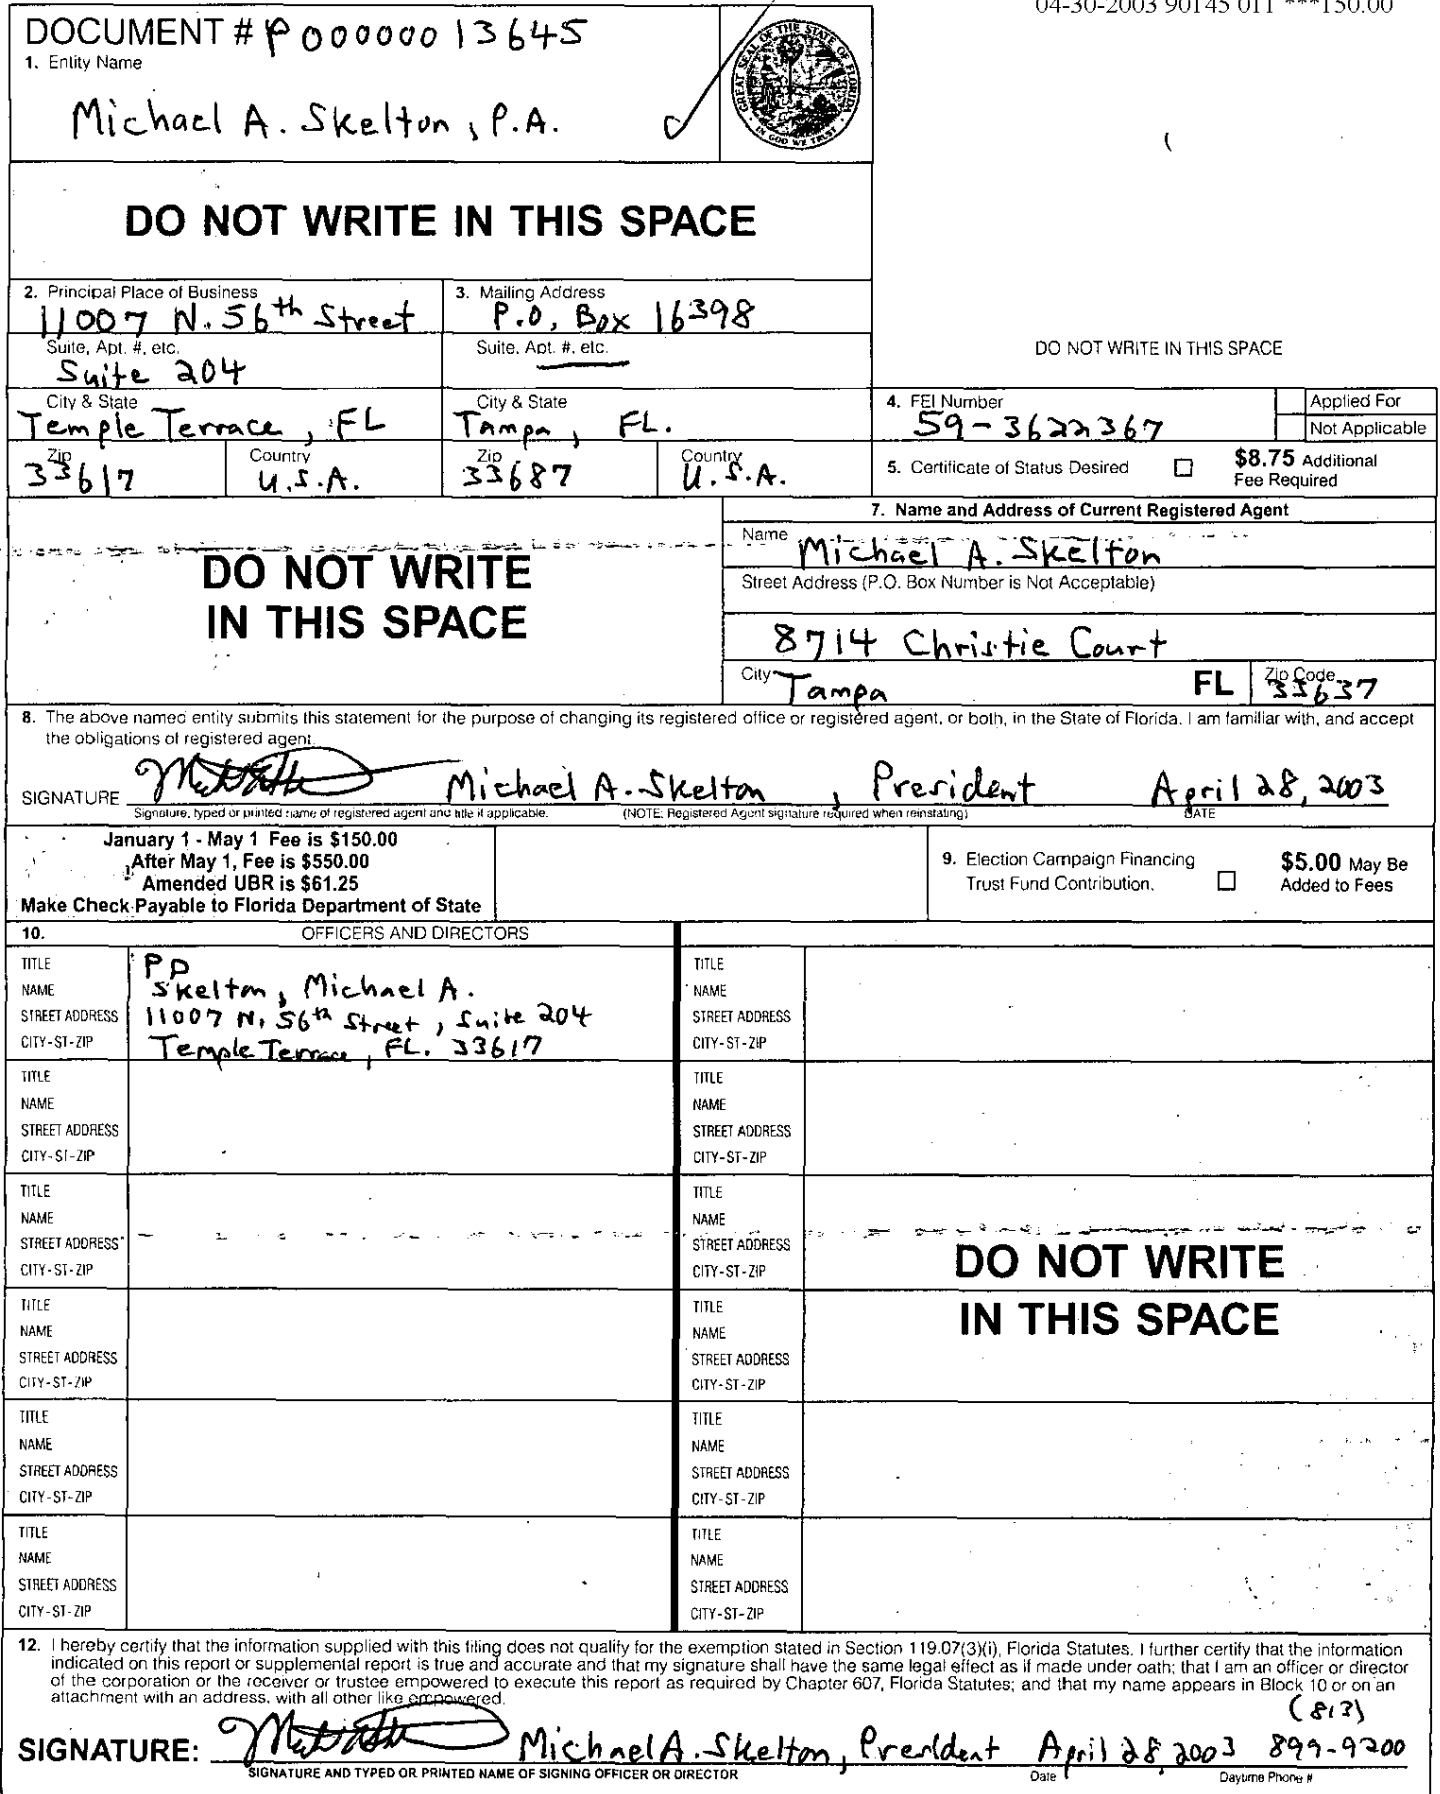 04-30-2003 90145 011 ***150.00
DOCUMENT # P00000013645
1. Entity Name
Michael A. Skelton, P.A.
GREAT SEAL OF THE STATE OF FLORIDA
IN GOD WE TRUST
DO NOT WRITE IN THIS SPACE
2. Principal Place of Business
11007 N. 56th Street
3. Mailing Address
P.O. Box 16398
Suite, Apt. #, etc.
Suite 204
Suite, Apt. #, etc.
DO NOT WRITE IN THIS SPACE
City & State
Temple Terrace, FL
City & State
Tampa, FL.
4. FEI Number
59-3622367
Applied For
Not Applicable
Zip
33617
Country
U.S.A.
Zip
33687
Country
U.S.A.
5. Certificate of Status Desired
$8.75 Additional
Fee Required
7. Name and Address of Current Registered Agent
DO NOT WRITE
IN THIS SPACE
Name
Michael A. Skelton
Street Address (P.O. Box Number is Not Acceptable)
8714 Christie Court
City Tampa FL Zip Code 33637
8. The above named entity submits this statement for the purpose of changing its registered office or registered agent, or both, in the State of Florida. I am familiar with, and accept
the obligations of registered agent.
SIGNATURE Michael A. Skelton, President April 28, 2003
Signature, typed or printed name of registered agent and title if applicable. (NOTE: Registered Agent signature required when reinstating) DATE
January 1 - May 1 Fee is $150.00
After May 1, Fee is $550.00
Amended UBR is $61.25
Make Check Payable to Florida Department of State
9. Election Campaign Financing
Trust Fund Contribution.
$5.00 May Be
Added to Fees
10. OFFICERS AND DIRECTORS
TITLE PD
NAME Skelton, Michael A.
STREET ADDRESS 11007 N. 56th Street, Suite 204
CITY-ST-ZIP Temple Terrace, FL. 33617
TITLE
NAME
STREET ADDRESS
CITY-ST-ZIP
TITLE
NAME
STREET ADDRESS
CITY-ST-ZIP
TITLE
NAME
STREET ADDRESS
CITY-ST-ZIP
TITLE
NAME
STREET ADDRESS
CITY-ST-ZIP
TITLE
NAME
STREET ADDRESS
CITY-ST-ZIP
TITLE
NAME
STREET ADDRESS
CITY-ST-ZIP
TITLE
NAME
STREET ADDRESS
CITY-ST-ZIP
TITLE
NAME
STREET ADDRESS
CITY-ST-ZIP
DO NOT WRITE
IN THIS SPACE
TITLE
NAME
STREET ADDRESS
CITY-ST-ZIP
TITLE
NAME
STREET ADDRESS
CITY-ST-ZIP
TITLE
NAME
STREET ADDRESS
CITY-ST-ZIP
12. I hereby certify that the information supplied with this filing does not qualify for the exemption stated in Section 119.07(3)(i), Florida Statutes. I further certify that the information
indicated on this report or supplemental report is true and accurate and that my signature shall have the same legal effect as if made under oath; that I am an officer or director
of the corporation or the receiver or trustee empowered to execute this report as required by Chapter 607, Florida Statutes; and that my name appears in Block 10 or on an
attachment with an address, with all other like empowered.
(813)
SIGNATURE: Michael A. Skelton, President April 28, 2003 899-9200
SIGNATURE AND TYPED OR PRINTED NAME OF SIGNING OFFICER OR DIRECTOR Date Daytime Phone #